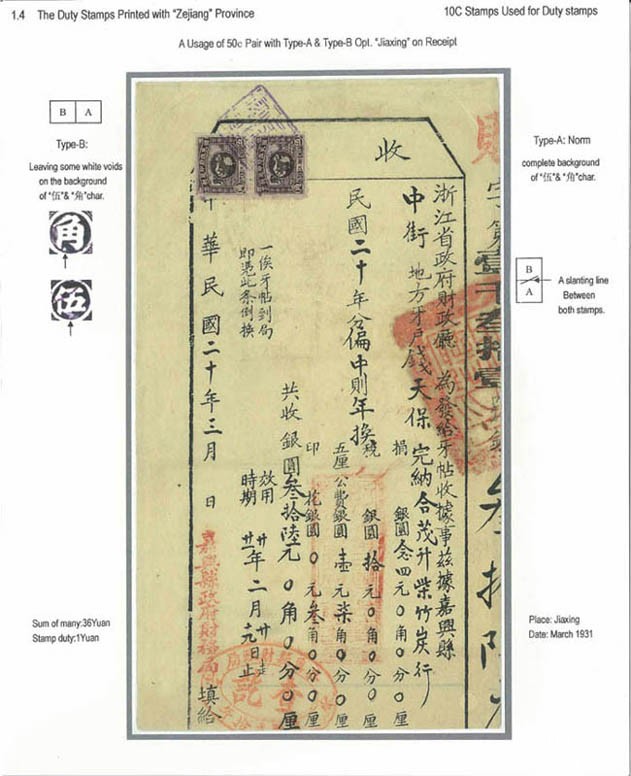 1.4 The Duty Stamps Printed with "Zejiang" Province
10C Stamps Used for Duty stamps
A Usage of 50c Pair with Type-A & Type-B Opt. "Jiaxing" on Receipt
B A
Type-B:
Leaving some white voids
on the background
of "伍"& "角"char.
角
伍
Type-A: Norm
complete background
of "伍"& "角"char.
B
A
A slanting line
Between
both stamps.
收
字第壹千叁拾壹
浙江省政府財政廳 為發給牙帖收據事茲據嘉興縣
中街 地方牙戶錢天保 完納合茂升柴竹炭行
捐 銀圓念四元0角0分0厘
民國二十年分偏中則年換
稅 銀圓拾元0角0分0厘
五厘公費銀圓壹元柒角0分0厘
印花銀圓0元叁角0分0厘
共收銀圓叁拾陸元0角0分0厘
一俟牙帖到局
即憑此条倒換
效用
時期
廿年二月廿
廿一年二月十九日止
華民國二十年三月 日
嘉興縣政府財務局 填給
查訖
Sum of many:36Yuan
Stamp duty:1Yuan
Place: Jiaxing
Date: March 1931